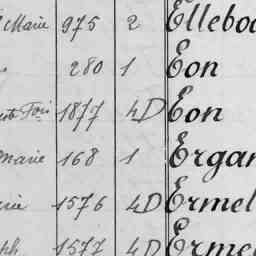 Marie 975 2 Ellebo
280 1 Eon
1877 4D Eon
marie 168 1 Ergan
rie 1576 4D Ermel
ph 1577 4D Erme